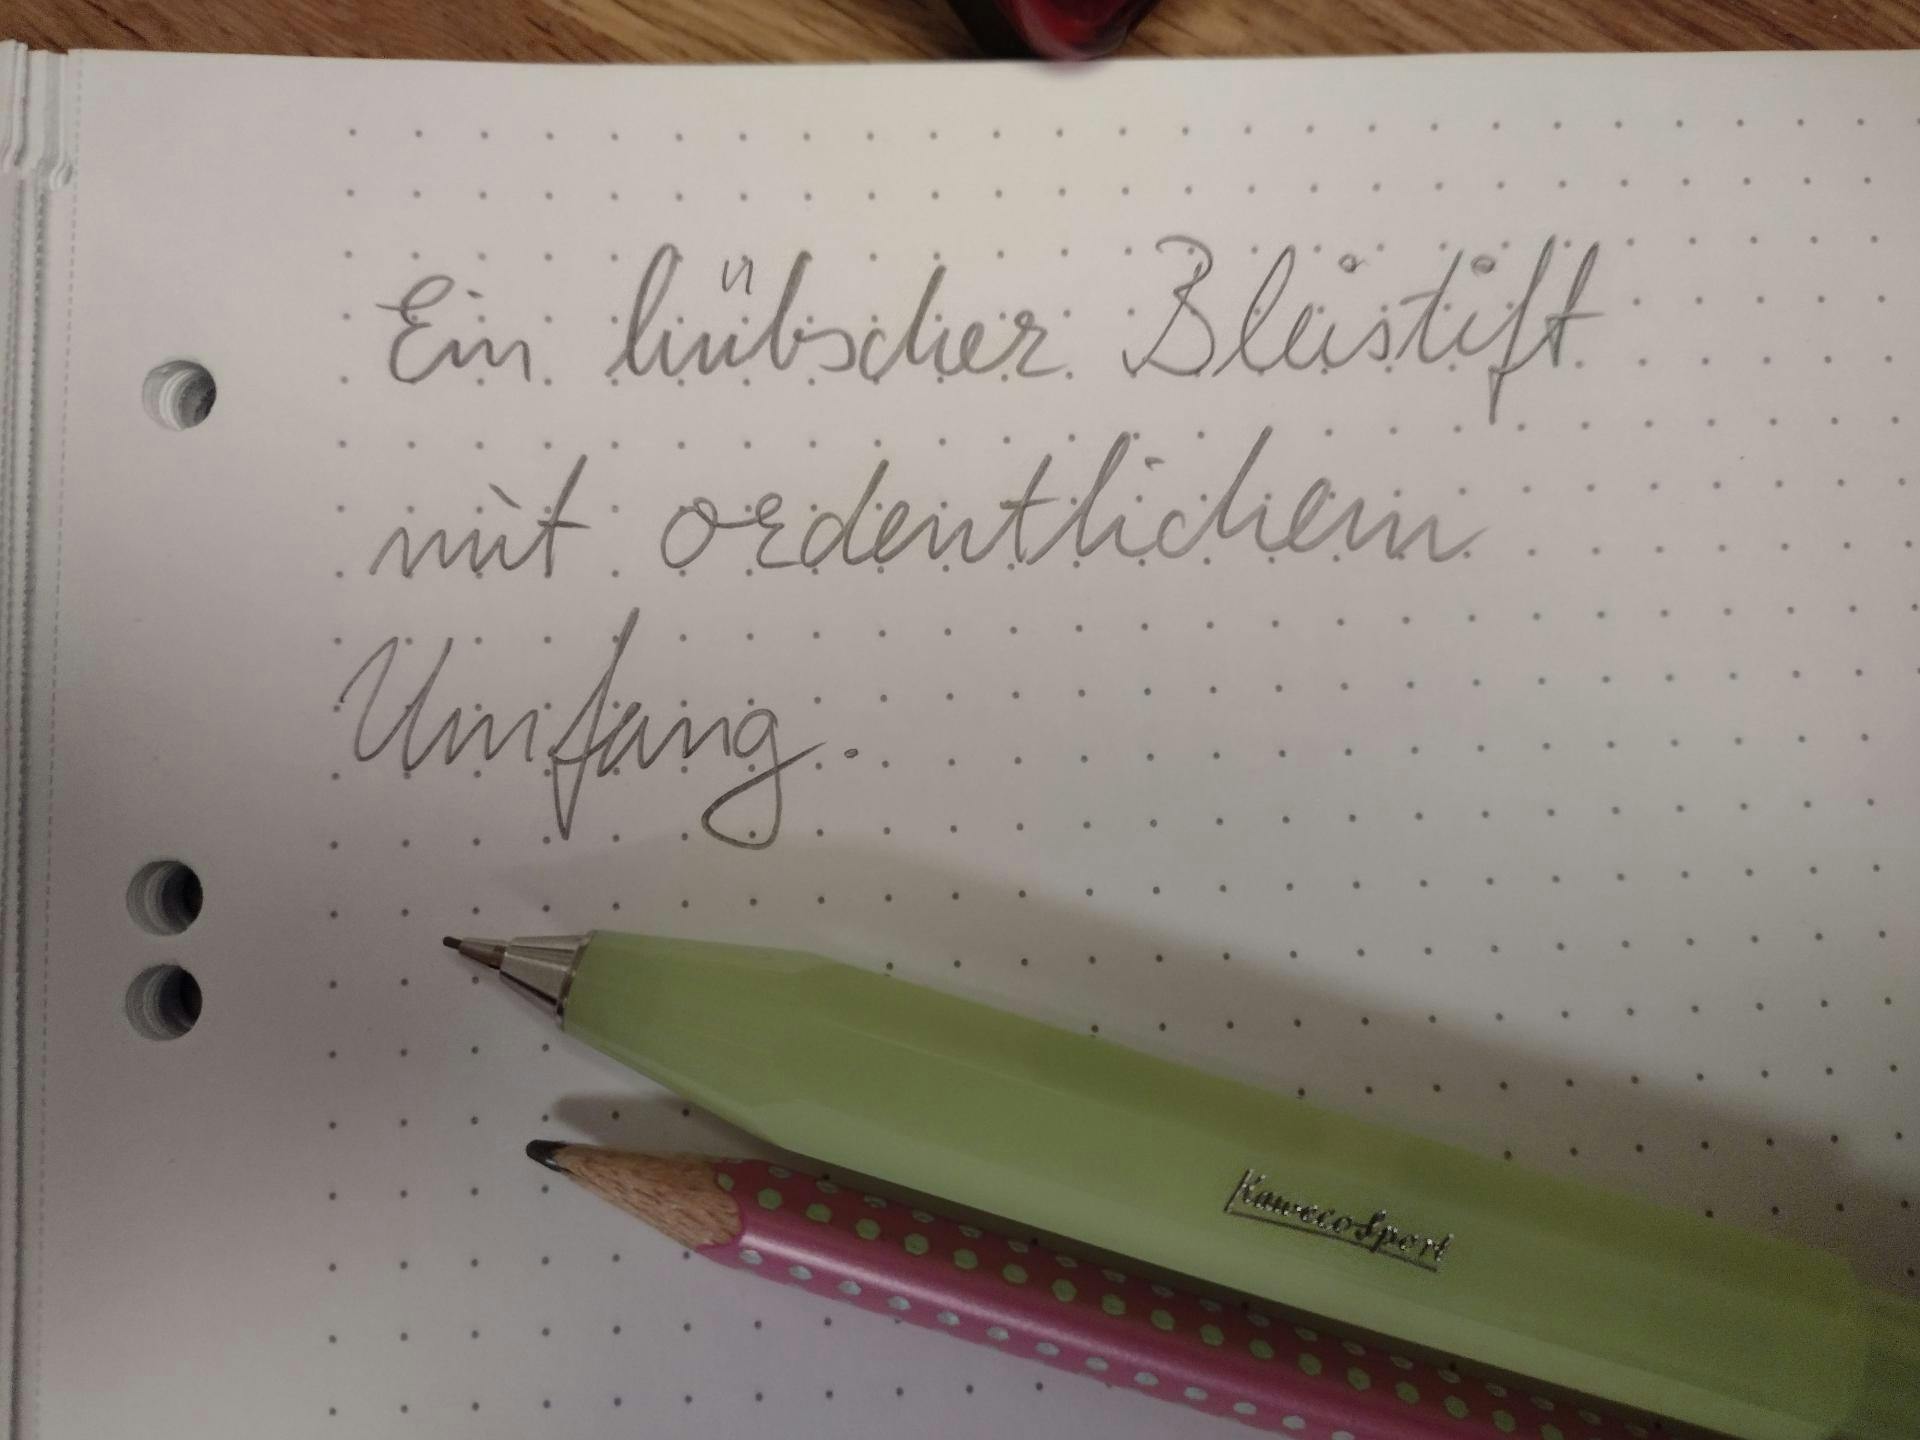 Ein hübscher Bleistift
mit ordentlichem
Umfang.
Kaweco Sport